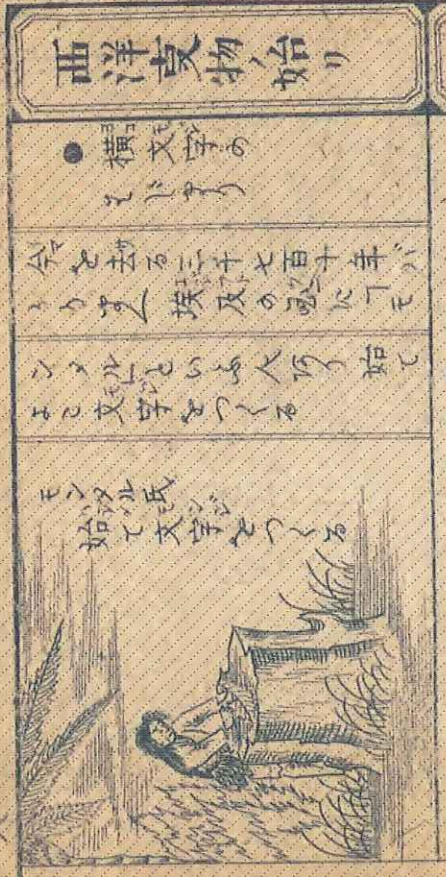 西洋叓物ノ始リ
●横文字の
はじまり
今を去る三千七百十年バ
かりまへ埃及の國に「モ
ンメル」といふ人アリ始て
よこ文字をつくる
モンメル氏
始て文字をつくる